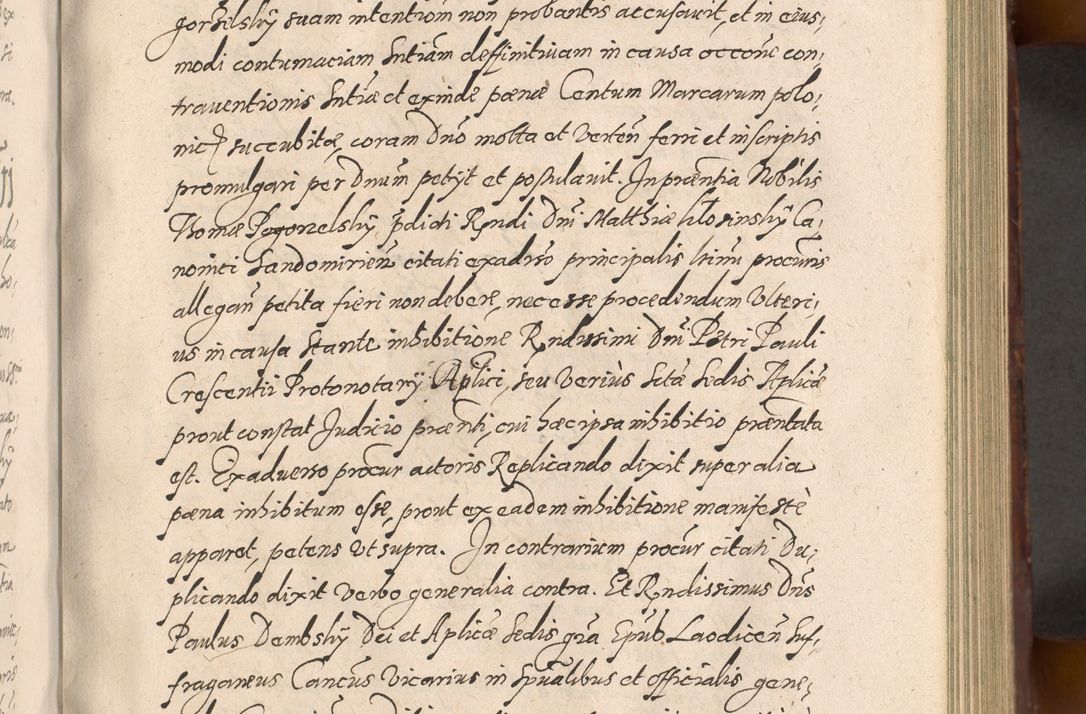 gorzelsky suam intention̄ non probantis accusavit, et in eius,
modi contumaciam sntiam deffinitivam in causa occone con,
traventionis sntiæ et exinde pœnæ Centum Marcarum polo,
nic succubitæ, coram Dno mosta et Verten̄ ferri et in scriptis
promulgari per Dnum petÿt et postulavit. In præntia Nobilis
Thomæ Pogorzelsky, pdicti Rndi Dni Matthiæ Ca,
nonici Sandomirien̄ citati ex adiso principalis ltimi procuris
allegan̄ petita fieri non debere, necesse procedendum Vlteri,
us in causa stante inhibitione Rndissimi Dni Petri Pauli
Crescentii Protonotarÿ Aplici, seu verius Sctæ Sedis Aplicæ
prout constat Judicio prænti, cui hæc ipsa inhibitio præntata
est. Ex adverso procur actoris Replicando dixit super alia
pœna inhibitum esse, prout ex eadem inhibitione manifestè
apparet, petens vt supra. In contrarium procur citati Du,
plicando dixit verbo generalia contra. Et Rndissimus Dns
Paulus Dembsky Dei et Aplicæ Sedis gra Epūs Laodicen̄ Suf,
fraganeus Cancus Vicarius in spualibus et officialis gene,